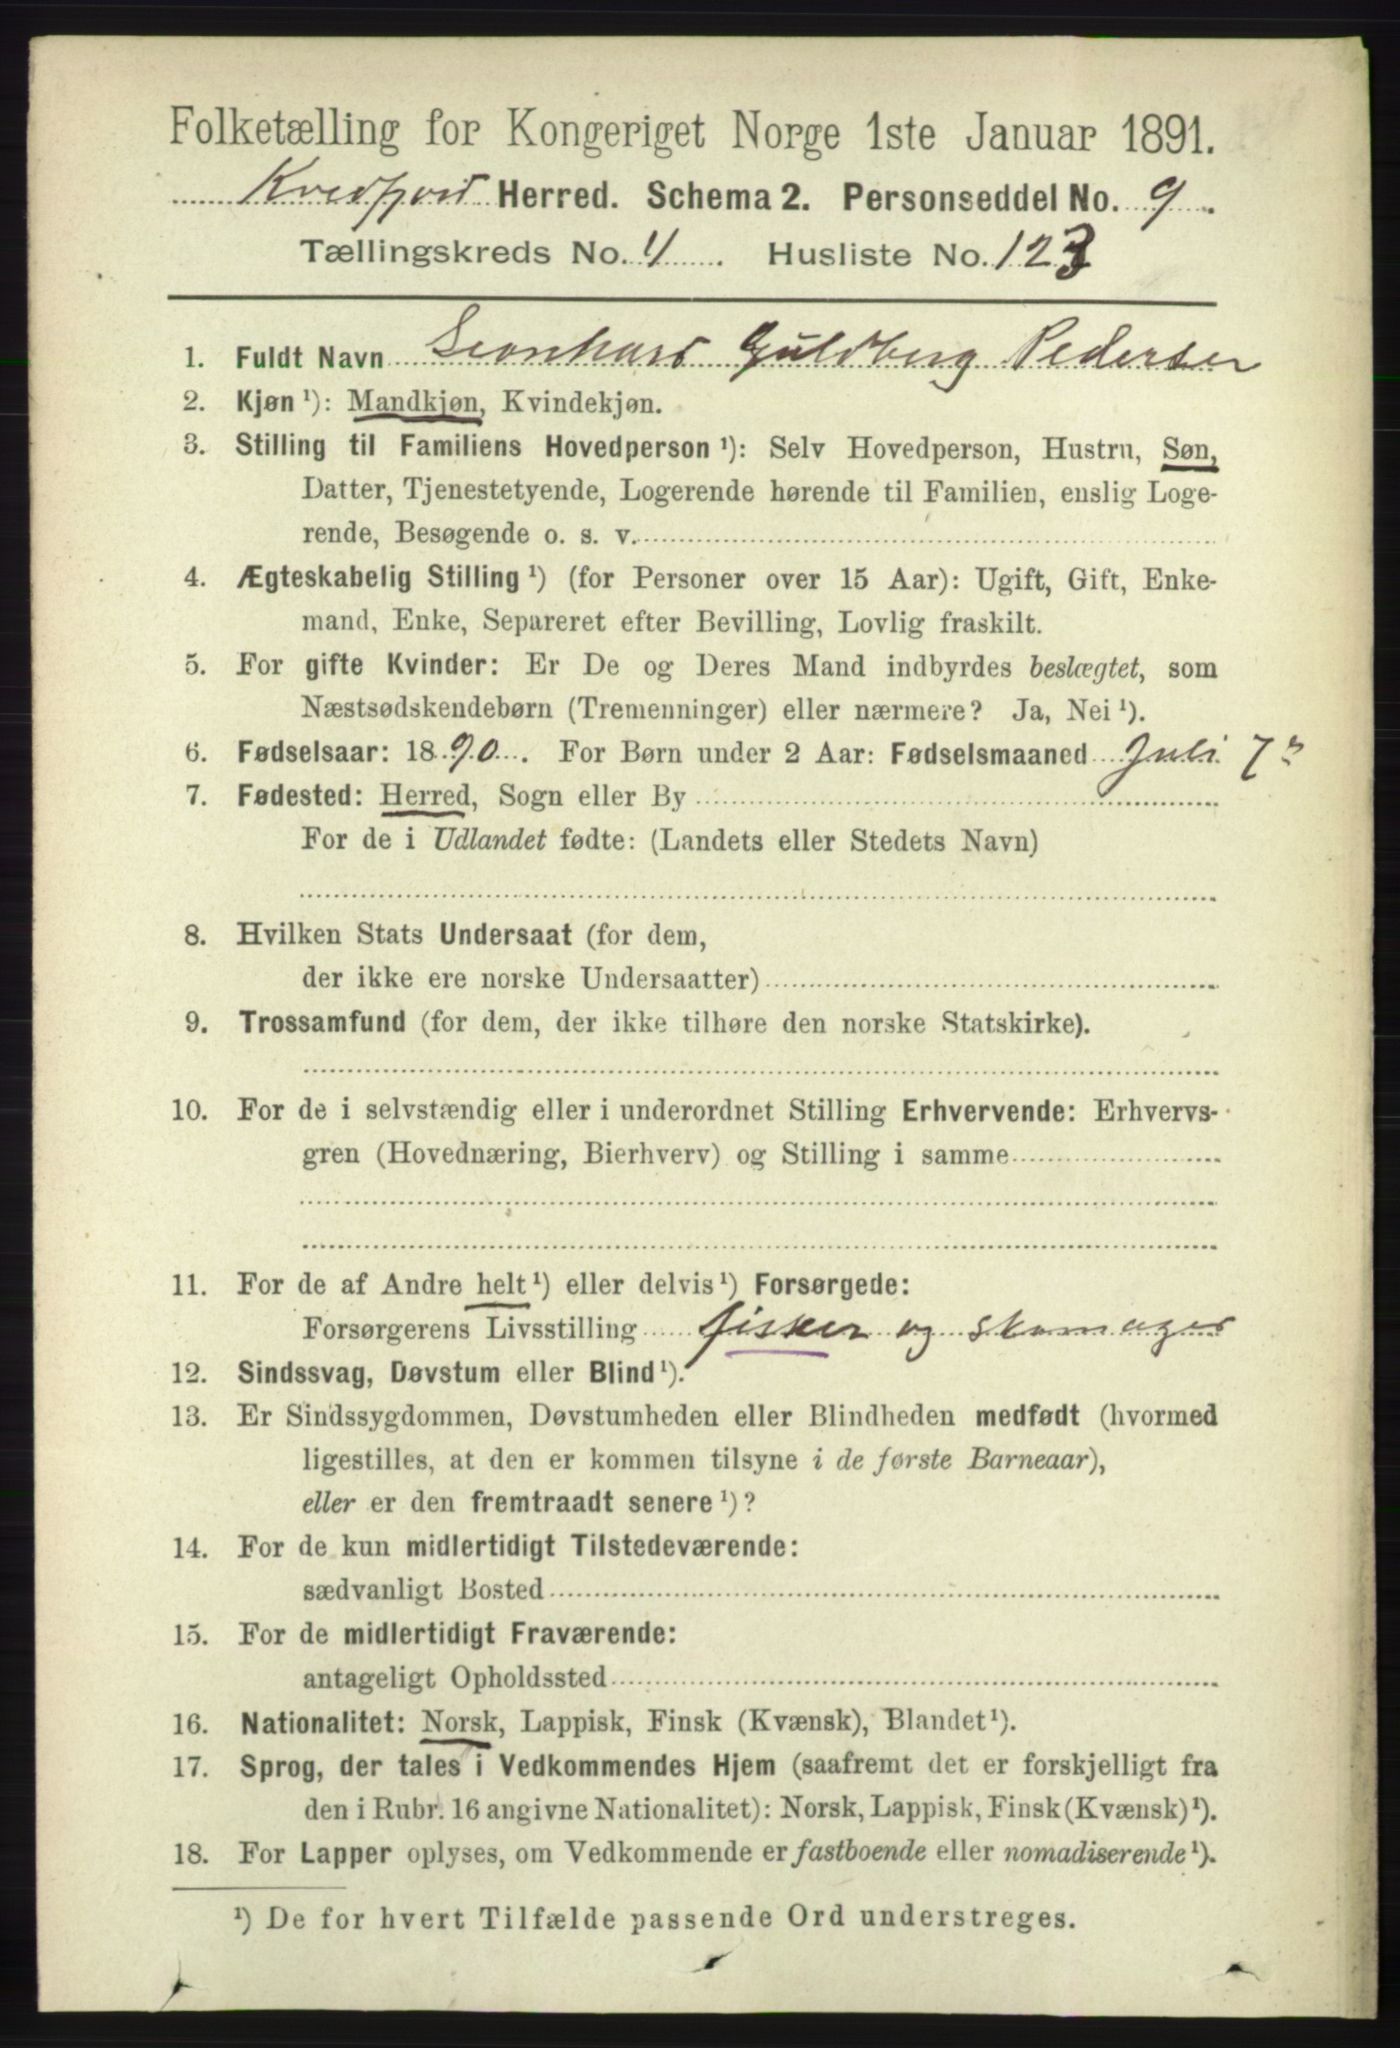 Folketælling for Kongeriget Norge 1ste Januar 1891.
Kvedfjord Herred. Schema 2. Personseddel No. 9
Tællingskreds No. 4 Husliste No. 123
1. Fuldt Navn Leonhard Guldberg Pedersen
2. Kjøn ¹): Mandkjøn, Kvindekjøn.
3. Stilling til Familiens Hovedperson ¹): Selv Hovedperson, Hustru, Søn,
Datter, Tjenestetyende, Logerende hørende til Familien, enslig Loge-
rende, Besøgende o. s. v.
4. Ægteskabelig Stilling ¹) (for Personer over 15 Aar): Ugift, Gift, Enke-
mand, Enke, Separeret efter Bevilling, Lovlig fraskilt.
5. For gifte Kvinder: Er De og Deres Mand indbyrdes beslægtet, som
Næstsødskendebørn (Tremenninger) eller nærmere? Ja, Nei ¹).
6. Fødselsaar: 1890. For Børn under 2 Aar: Fødselsmaaned Juli 7
7. Fødested: Herred, Sogn eller By
For de i Udlandet fødte: (Landets eller Stedets Navn)
8. Hvilken Stats Undersaat (for dem,
der ikke ere norske Undersaatter)
9. Trossamfund (for dem, der ikke tilhøre den norske Statskirke).
10. For de i selvstændig eller i underordnet Stilling Erhvervende: Erhvervs-
gren (Hovednæring, Bierhverv) og Stilling i samme
11. For de af Andre helt ¹) eller delvis ¹) Forsørgede:
Forsørgerens Livsstilling fisker og skomager
12. Sindssvag, Døvstum eller Blind ¹).
13. Er Sindssygdommen, Døvstumheden eller Blindheden medfødt (hvormed
ligestilles, at den er kommen tilsyne i de første Barneaar),
eller er den fremtraadt senere ¹)?
14. For de kun midlertidigt Tilstedeværende:
sædvanligt Bosted
15. For de midlertidigt Fraværende:
antageligt Opholdssted
16. Nationalitet: Norsk, Lappisk, Finsk (Kvænsk), Blandet ¹).
17. Sprog, der tales i Vedkommendes Hjem (saafremt det er forskjelligt fra
den i Rubr. 16 angivne Nationalitet): Norsk, Lappisk, Finsk (Kvænsk) ¹).
18. For Lapper oplyses, om Vedkommende er fastboende eller nomadiserende ¹).
¹) De for hvert Tilfælde passende Ord understreges.